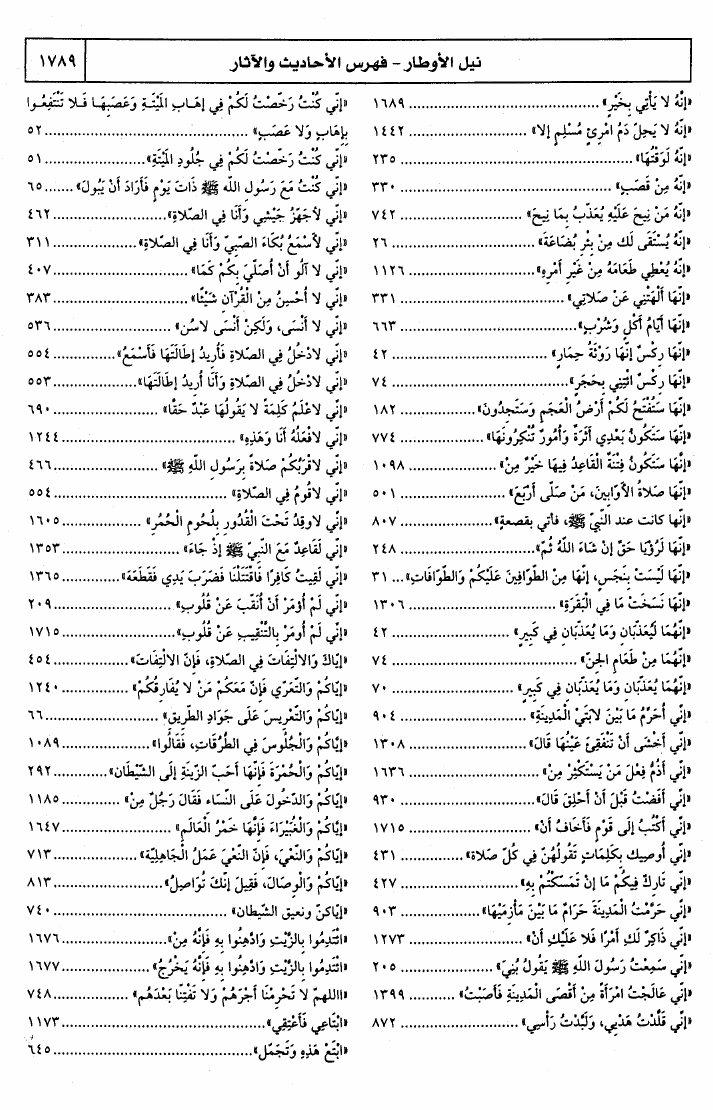 نيل الأوطار - فهرس الأحاديث والآثار
١٧٨٩
«إِنَّهُ لا يَأْتِي بِخَيْرٍ» ........ ١٦٨٩
«إِنَّهُ لا يَحِلّ دَمُ امْرِئٍ مُسْلِمٍ إلا» ........ ١٤٤٢
«إِنَّهُ لَوَقْتُهَا» ........ ٢٣٥
«إِنَّهُ مِنْ قَصَبٍ» ........ ٣٣٠
«إِنَّهُ مَنْ نِيحَ عَلَيْهِ يُعَذَّبُ بِمَا نِيحَ» ........ ٧٤٢
«إِنَّهُ يُسْتَقَى لَك مِنْ بِئْرِ بُضَاعَةَ» ........ ٢٦
«إِنَّهُ يُعْطِي طَعَامَهُ مِنْ غَيْرِ أَمْرِهِ» ........ ١١٢٦
«إِنَّهَا أَلْهَتْنِي عَنْ صَلاتِي» ........ ٣٣١
«إِنَّهَا أَيَّامُ أَكْلٍ وَشُرْبٍ» ........ ٦٦٣
«إِنَّهَا رِكْسٌ إِنَّهَا رَوْثَةُ حِمَارٍ» ........ ٤٢
«إِنَّهَا رِكْسٌ ائْتِنِي بِحَجَرٍ» ........ ٧٤
«إِنَّهَا سَتُفْتَحُ لَكُمْ أَرْضُ الْعَجَمِ وَسَتَجِدُونَ» ........ ١٨٢
«إِنَّهَا سَتَكُونُ بَعْدِي أَثَرَةٌ وَأُمُورٌ تُنْكِرُونَهَا» ........ ٧٧٤
«إِنَّهَا سَتَكُونُ فِتْنَةٌ الْقَاعِدُ فِيهَا خَيْرٌ مِنْ» ........ ١٠٩٨
«إِنَّهَا صَلاةُ الأَوَّابِينَ، مَنْ صَلَّى أَرْبَعَ» ........ ٥٠١
«إنها كانت عند النَّبِيّ ﷺ، فأتي بقصعةٍ» ........ ٨٠٧
«إِنَّهَا لَرُؤْيَا حَقٌّ إِنْ شَاءَ اللهُ ثُمَّ» ........ ٢٤٨
«إِنَّهَا لَيْسَتْ بِنَجَسٍ، إِنَّهَا مِنْ الطَّوَّافِينَ عَلَيْكُمْ وَالطَّوَّافَاتِ» ... ٣١
«إِنَّهَا نَسَخَتْ مَا فِي الْبَقَرَةِ» ........ ١٣٠٦
«إِنَّهُمَا لَيُعَذَّبَانِ وَمَا يُعَذَّبَانِ فِي كَبِيرٍ» ........ ٤٢
«إِنَّهُمَا مِنْ طَعَامِ الجِنّ» ........ ٧٤
«إِنَّهُمَا يُعَذَّبَانِ وَمَا يُعَذَّبَانِ فِي كَبِيرٍ» ........ ٧٠
«إِنِّي أُحَرِّمُ مَا بَيْنَ لابَتَيْ الْمَدِينَةِ» ........ ٩٠٤
«إِنِّي أَخْشَى أَنْ تَنْفَقِئَ عَيْنُهَا قَالَ» ........ ١٣٠٨
«إِنِّي أَذُمُّ فِعْلَ مَنْ يَسْتَكْثِرُ مِنْ» ........ ١٦٣٦
«إِنِّي أَفَضْتُ قَبْلَ أَنْ أَحْلِقَ قَالَ» ........ ٩٣٠
«إِنِّي أَكْتُبُ إِلَى قَوْمٍ فَأَخَافُ أَنْ» ........ ١٧١٥
«إِنِّي أُوصِيك بِكَلِمَاتٍ تَقُولُهُنّ فِي كُلّ صَلاة» ........ ٤٣١
«إِنِّي تَارِكٌ فِيكُمْ مَا إِنْ تَمَسَّكْتُمْ بِهِ» ........ ٤٢٧
«إِنِّي حَرَّمْتُ الْمَدِينَةَ حَرَامٌ مَا بَيْنَ مَأْزِمَيْهَا» ........ ٩٠٣
«إِنِّي ذَاكِرٌ لَكِ أَمْرًا فَلا عَلَيْكِ أَنْ» ........ ١٢٧٣
«إِنِّي سَمِعْتُ رَسُولَ اللهِ ﷺ يَقُولُ بُنِيَ» ........ ٢٠٥
«إِنِّي عَالَجْتُ امْرَأَةً مِنْ أَقْصَى الْمَدِينَةِ فَأَصَبْتُ» ........ ١٣٩٩
«إِنِّي قَلَّدْتُ هَدْيِي، وَلَبَّدْتُ رَأْسِي» ........ ٨٧٢
«إِنِّي كُنْتُ رَخَّصْتُ لَكُمْ فِي إِهَابِ المَيْتَةِ وَعَصَبِهَا فَلا تَنْتَفِعُوا
بِإِهَابٍ وَلا عَصَبٍ» ........ ٥٢
«إِنِّي كُنْتُ رَخَّصْتُ لَكُمْ فِي جُلُودِ المَيْتَةِ» ........ ٥١
«إِنِّي كُنْتُ مَعَ رَسُولِ الله ﷺ ذَاتَ يَوْمٍ فَأَرَادَ أَنْ يَبُولَ» ...... ٦٥
«إِنِّي لأُجَهِّزُ جَيْشِي وَأَنَا فِي الصَّلاةِ» ........ ٤٦٢
«إِنِّي لأَسْمَعُ بُكَاءَ الصَّبِيِّ وَأَنَا فِي الصَّلاةِ» ........ ٣١١
«إِنِّي لا آلُو أَنْ أُصَلِّيَ بِكُمْ كَمَا» ........ ٤٠٧
«إِنِّي لا أُحْسِنُ مِنْ الْقُرْآنِ شَيْئًا» ........ ٣٨٣
«إِنِّي لا أَنْسَى، وَلَكِنْ أُنَسَّى لاسُنَّ» ........ ٥٣٦
«إِنِّي لادْخُلُ فِي الصَّلاةِ فَأُرِيدُ إِطَالَتَهَا فَأَسْمَعُ» ........ ٥٥٤
«إِنِّي لادْخُلُ فِي الصَّلاةِ وَأَنَا أُرِيدُ إِطَالَتَهَا» ........ ٥٥٣
«إِنِّي لاعْلَمُ كَلِمَةً لا يَقُولُهَا عَبْدٌ حَقًّا» ........ ٦٩٠
«إِنِّي لافْعَلُهُ أَنَا وَهَذِهِ» ........ ١٢٤٤
«إِنِّي لاقْرَبُكُمْ صَلاةً بِرَسُولِ اللهِ ﷺ» ........ ٤٦٦
«إِنِّي لاقُومُ فِي الصَّلاةِ» ........ ٥٥٤
«إِنِّي لاوقِدُ تَحْتَ الْقُدُورِ بِلُحُومِ الْحُمُرِ» ........ ١٦٠٥
«إِنِّي لَقَاعِدٌ مَعَ النَّبِيِّ ﷺ إِذْ جَاءَ» ........ ١٣٥٣
«إِنِّي لَقِيتُ كَافِرًا فَاقْتَتَلْنَا فَضَرَبَ يَدِي فَقَطَعَهُ» ........ ١٣٦٥
«إِنِّي لَمْ أُوْمَرْ أَنْ أُنَقِّبَ عَنْ قُلُوبِ» ........ ٢٠٩
«إِنِّي لَمْ أُومَرْ بِالتَّنْقِيبِ عَنْ قُلُوبِ» ........ ١٧١٥
«إِيَّاكَ وَالالْتِفَاتَ فِي الصَّلاةِ، فَإِنّ الالْتِفَاتَ» ........ ٤٥٤
«إِيَّاكُمْ وَالتَّعَرِّي فَإِنَّ مَعَكُمْ مَنْ لا يُفَارِقُكُمْ» ........ ١٢٤٠
«إِيَّاكُمْ وَالتَّعْرِيسَ عَلَى جَوَادِ الطَّرِيقِ» ........ ٦٦
«إِيَّاكُمْ وَالْجُلُوسَ فِي الطُّرُقَاتِ، فَقَالُوا» ........ ١٠٨٩
«إِيَّاكُمْ وَالْحُمْرَةَ فَإِنَّهَا أَحَبّ الزِّينَةِ إِلَى الشَّيْطَانِ» ........ ٢٩٢
«إِيَّاكُمْ وَالدّخُولَ عَلَى النِّسَاءِ فَقَالَ رَجُلٌ مِنْ» ........ ١١٨٥
«إِيَّاكُمْ وَالْغُبَيْرَاءَ فَإِنَّهَا خَمْرُ الْعَالَمِ» ........ ١٦٤٧
«إِيَّاكُمْ وَالنَّعْيَ، فَإِنّ النَّعْيَ عَمَلُ الْجَاهِلِيَّةِ» ........ ٧١٣
«إِيَّاكُمْ وَالْوِصَالَ، فَقِيلَ إِنَّكَ تُوَاصِلُ» ........ ٨١٣
«إيّاكنّ ونعيق الشّيطان» ........ ٧٤٠
«ائْتَدِمُوا بِالزَّيْتِ وَادْهِنُوا بِهِ فَإِنَّهُ مِنْ» ........ ١٦٧٦
«ائْتَدِمُوا بِالزَّيْتِ وَادْهِنُوا بِهِ فَإِنَّهُ يَخْرُجُ» ........ ١٦٧٧
«االلهمّ لا تَحْرِمْنَا أَجْرَهُمْ وَلا تَفْتِنَّا بَعْدَهُم» ........ ٧٤٨
«ابْتَاعِي فَأَعْتِقِي» ........ ١١٧٣
«ابْتَعْ هَذِهِ وَتَجَمّل» ........ ٦٤٥